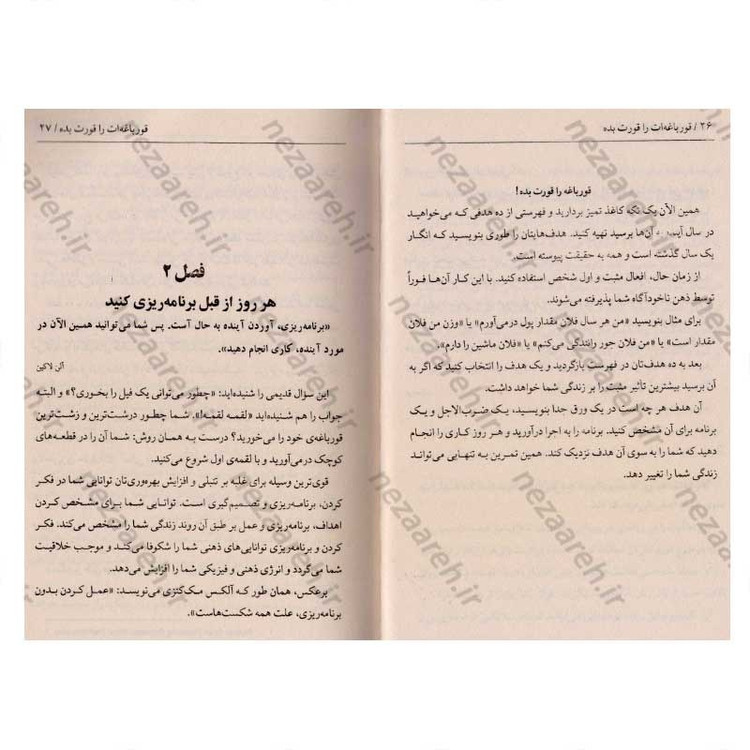 ۲۶ / قورباغه‌ات را قورت بده
قورباغه را قورت بده!
همین الآن یک تکه کاغذ تمیز بردارید و فهرستی از ده هدفی که می‌خواهید
در سال آینده به آن‌ها برسید تهیه کنید. هدف‌هایتان را طوری بنویسید که انگار
یک سال گذشته است و همه به حقیقت پیوسته است.
از زمان حال، افعال مثبت و اول شخص استفاده کنید. با این کار آن‌ها فوراً
توسط ذهن ناخودآگاه شما پذیرفته می‌شوند.
برای مثال بنویسید «من هر سال فلان مقدار پول درمی‌آورم» یا «وزن من فلان
مقدار است» یا «من فلان جور رانندگی می‌کنم» یا «فلان ماشین را دارم».
بعد به ده هدف‌تان در فهرست بازگردید و یک هدف را انتخاب کنید که اگر به
آن برسید بیشترین تأثیر مثبت را بر زندگی شما خواهد داشت.
آن هدف هر چه است در یک ورق جدا بنویسید، یک ضرب‌الاجل و یک
برنامه برای آن مشخص کنید. برنامه را به اجرا درآورید و هر روز کاری را انجام
دهید که شما را به سوی آن هدف نزدیک کند. همین تمرین به تنهایی می‌تواند
زندگی شما را تغییر دهد.
قورباغه‌ات را قورت بده / ۲۷
فصل ۲
هر روز از قبل برنامه‌ریزی کنید
«برنامه‌ریزی، آوردن آینده به حال آست. پس شما می‌توانید همین الآن در
مورد آینده، کاری انجام دهید».
آلن لاکین
این سؤال قدیمی را شنیده‌اید: «چطور می‌توانی یک فیل را بخوری؟» و البته
جواب را هم شنیده‌اید «لقمه لقمه!». شما چطور درشت‌ترین و زشت‌ترین
قورباغه‌ی خود را می‌خورید؟ درست به همان روش: شما آن را در قطعه‌های
کوچک درمی‌آورید و با لقمه‌ی اول شروع می‌کنید.
قوی‌ترین وسیله برای غلبه بر تنبلی و افزایش بهره‌وری‌تان توانایی شما در فکر
کردن، برنامه‌ریزی و تصمیم‌گیری است. توانایی شما برای مشخص کردن
اهداف، برنامه‌ریزی و عمل بر طبق آن روند زندگی شما را مشخص می‌کند. فکر
کردن و برنامه‌ریزی توانایی‌های ذهنی شما را شکوفا می‌کند و موجب خلاقیت
شما می‌گردد و انرژی ذهنی و فیزیکی شما را افزایش می‌دهد.
برعکس، همان طور که آلکس مک‌کنزی می‌نویسد: «عمل کردن بدون
برنامه‌ریزی، علت همه شکست‌هاست».
nezaareh.ir
nezaareh.ir
nezaareh.ir
nezaareh.ir
nezaareh.ir
nezaareh.ir
nezaareh.ir
nezaareh.ir
nezaareh.ir